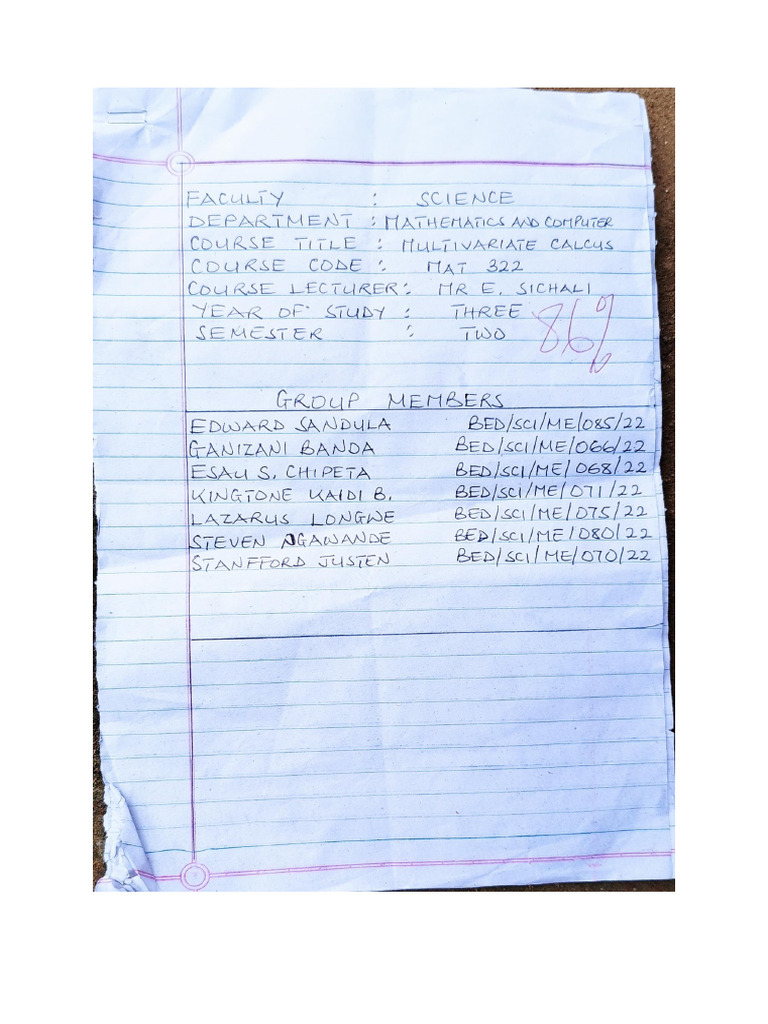 FACULTY : SCIENCE
DEPARTMENT : MATHEMATICS AND COMPUTER
COURSE TITLE : MULTIVARIATE CALCUS
COURSE CODE : MAT 322
COURSE LECTURER : MR E. SICHALI
YEAR OF STUDY : THREE
SEMESTER : TWO
86%
GROUP MEMBERS
EDWARD SANDULA BED/SCI/ME/085/22
GANIZANI BANDA BED/SCI/ME/066/22
ESAU S. CHIPETA BED/SCI/ME/068/22
KINGTONE KAIDI B. BED/SCI/ME/071/22
LAZARUS LONGWE BED/SCI/ME/075/22
STEVEN NGAWANDE BED/SCI/ME/080/22
STANFFORD JUSTEN BED/SCI/ME/070/22